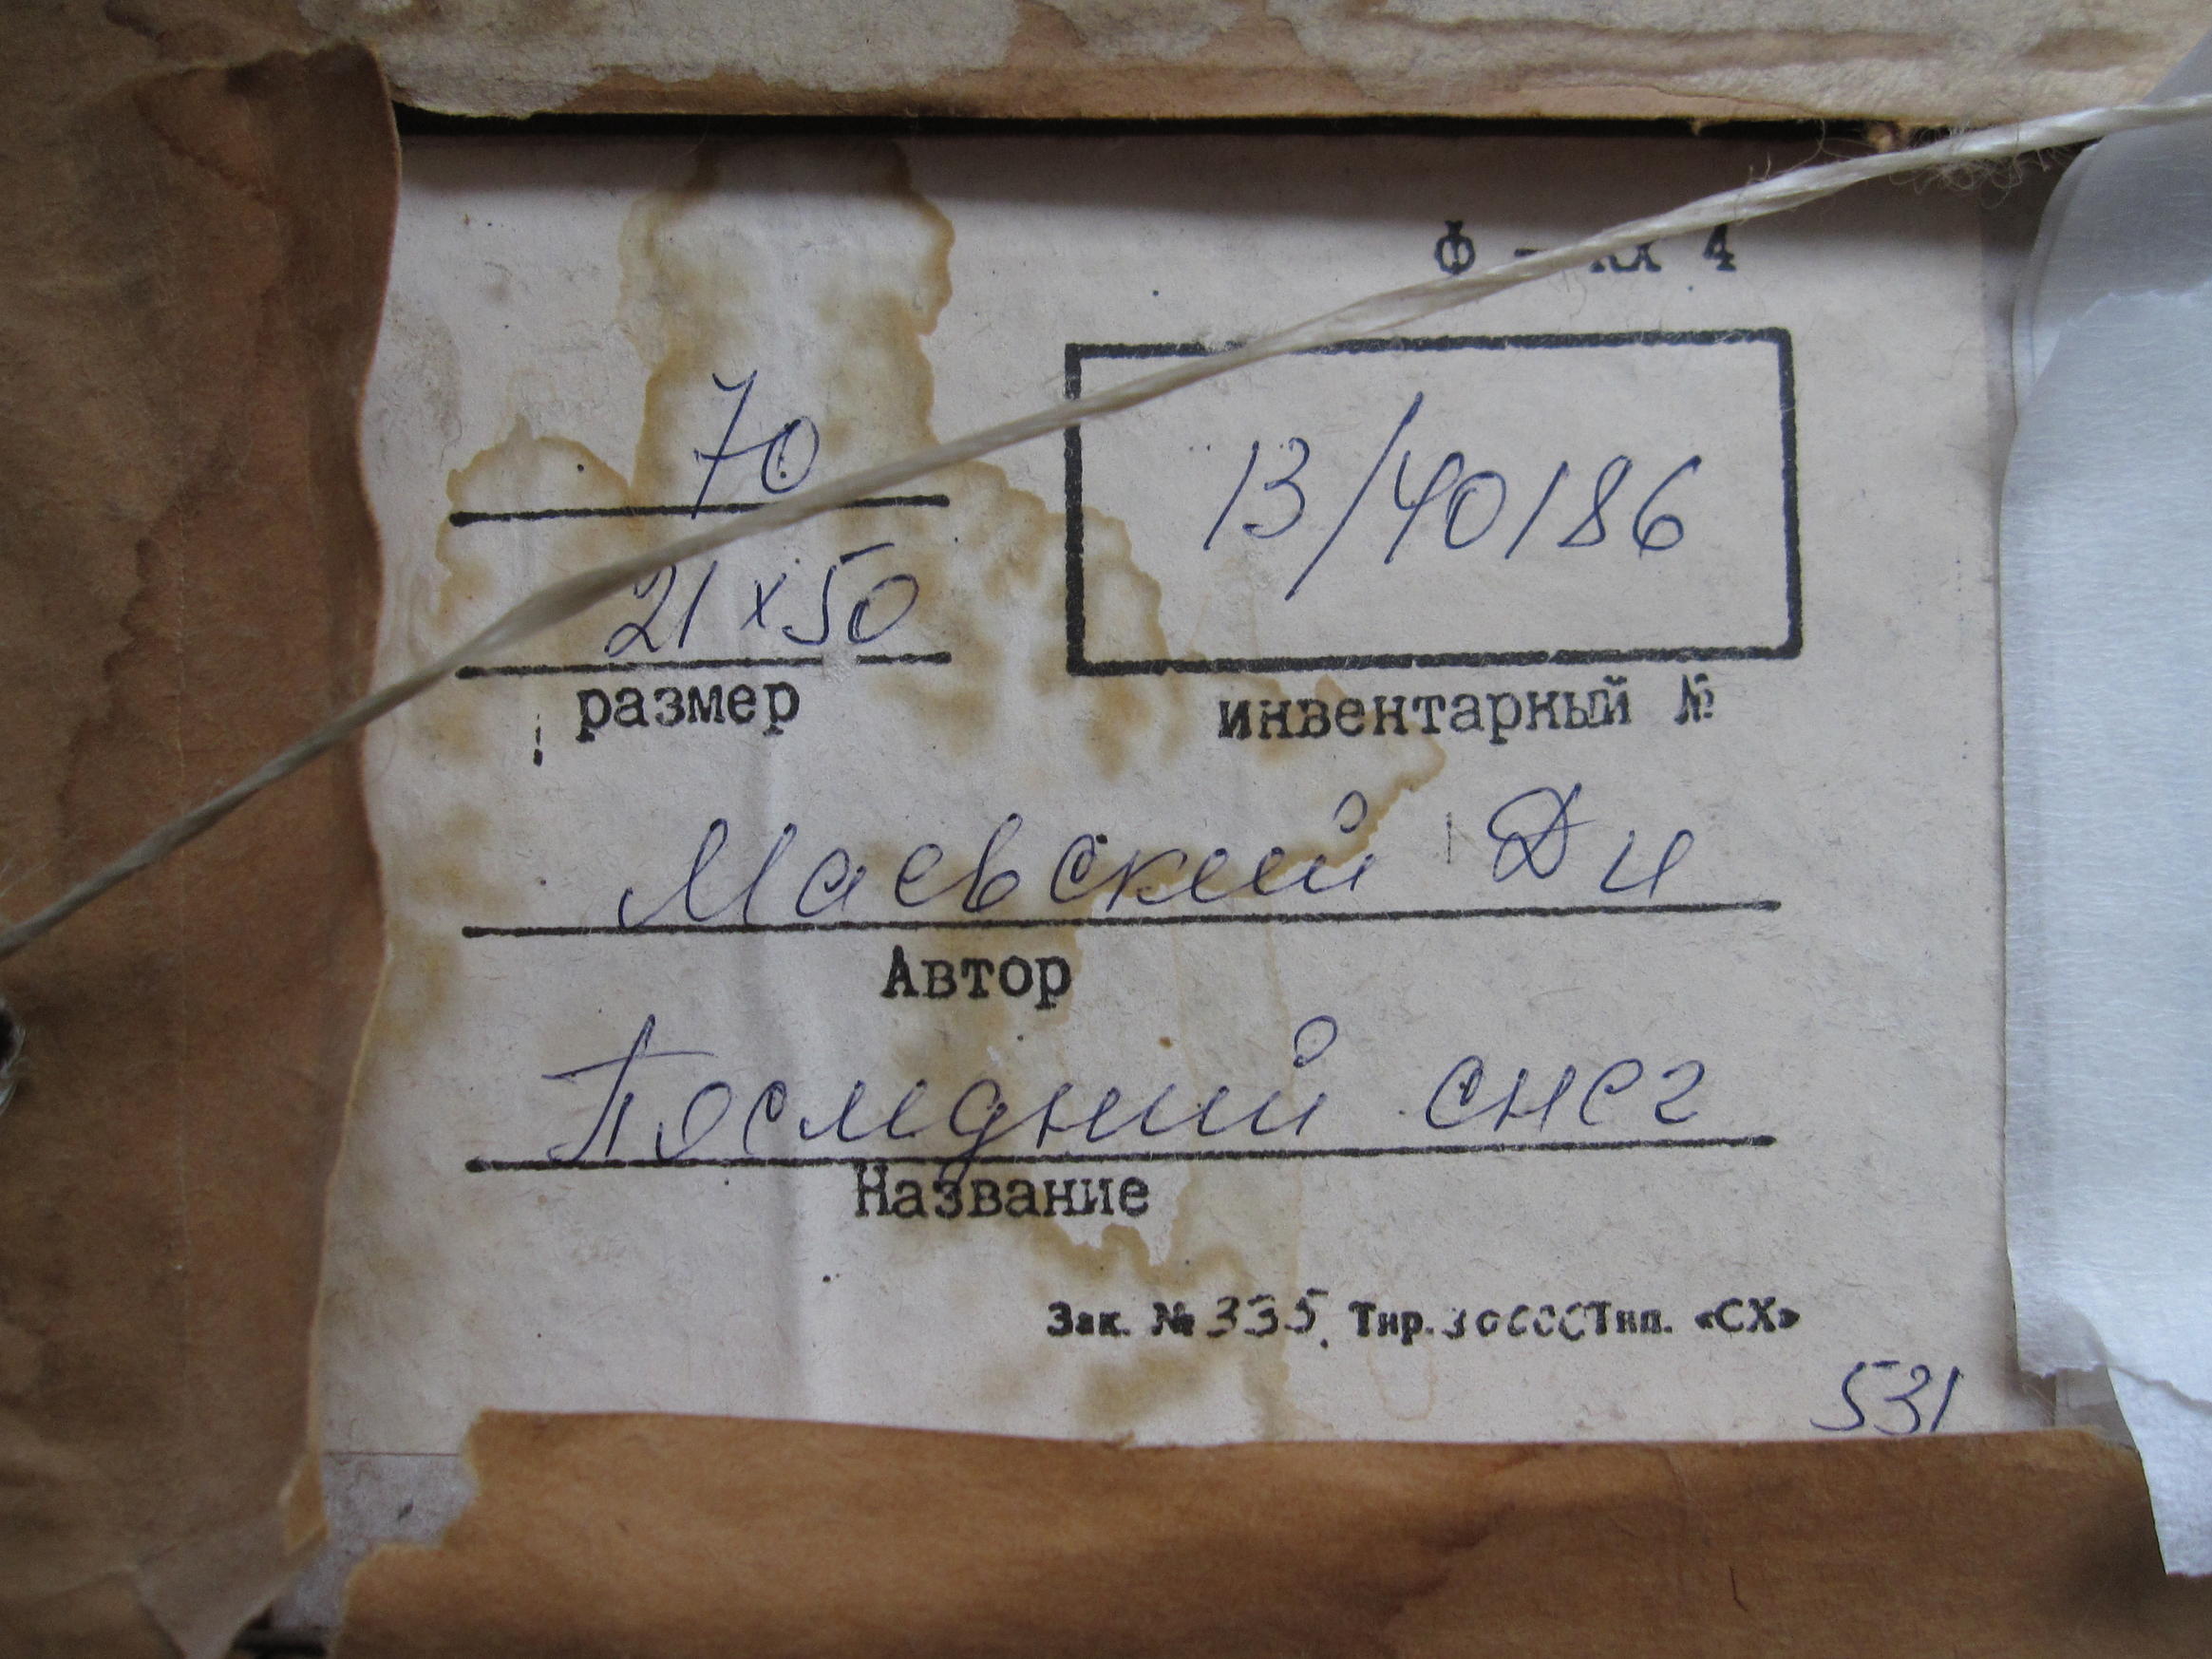 Ф - КХ 4
70
21 x 50
размер
13/40186
инвентарный №
Маевский Д И
Автор
Последний снег
Название
Зак. № 335. Тир. 30000 Тип. «СХ»
531